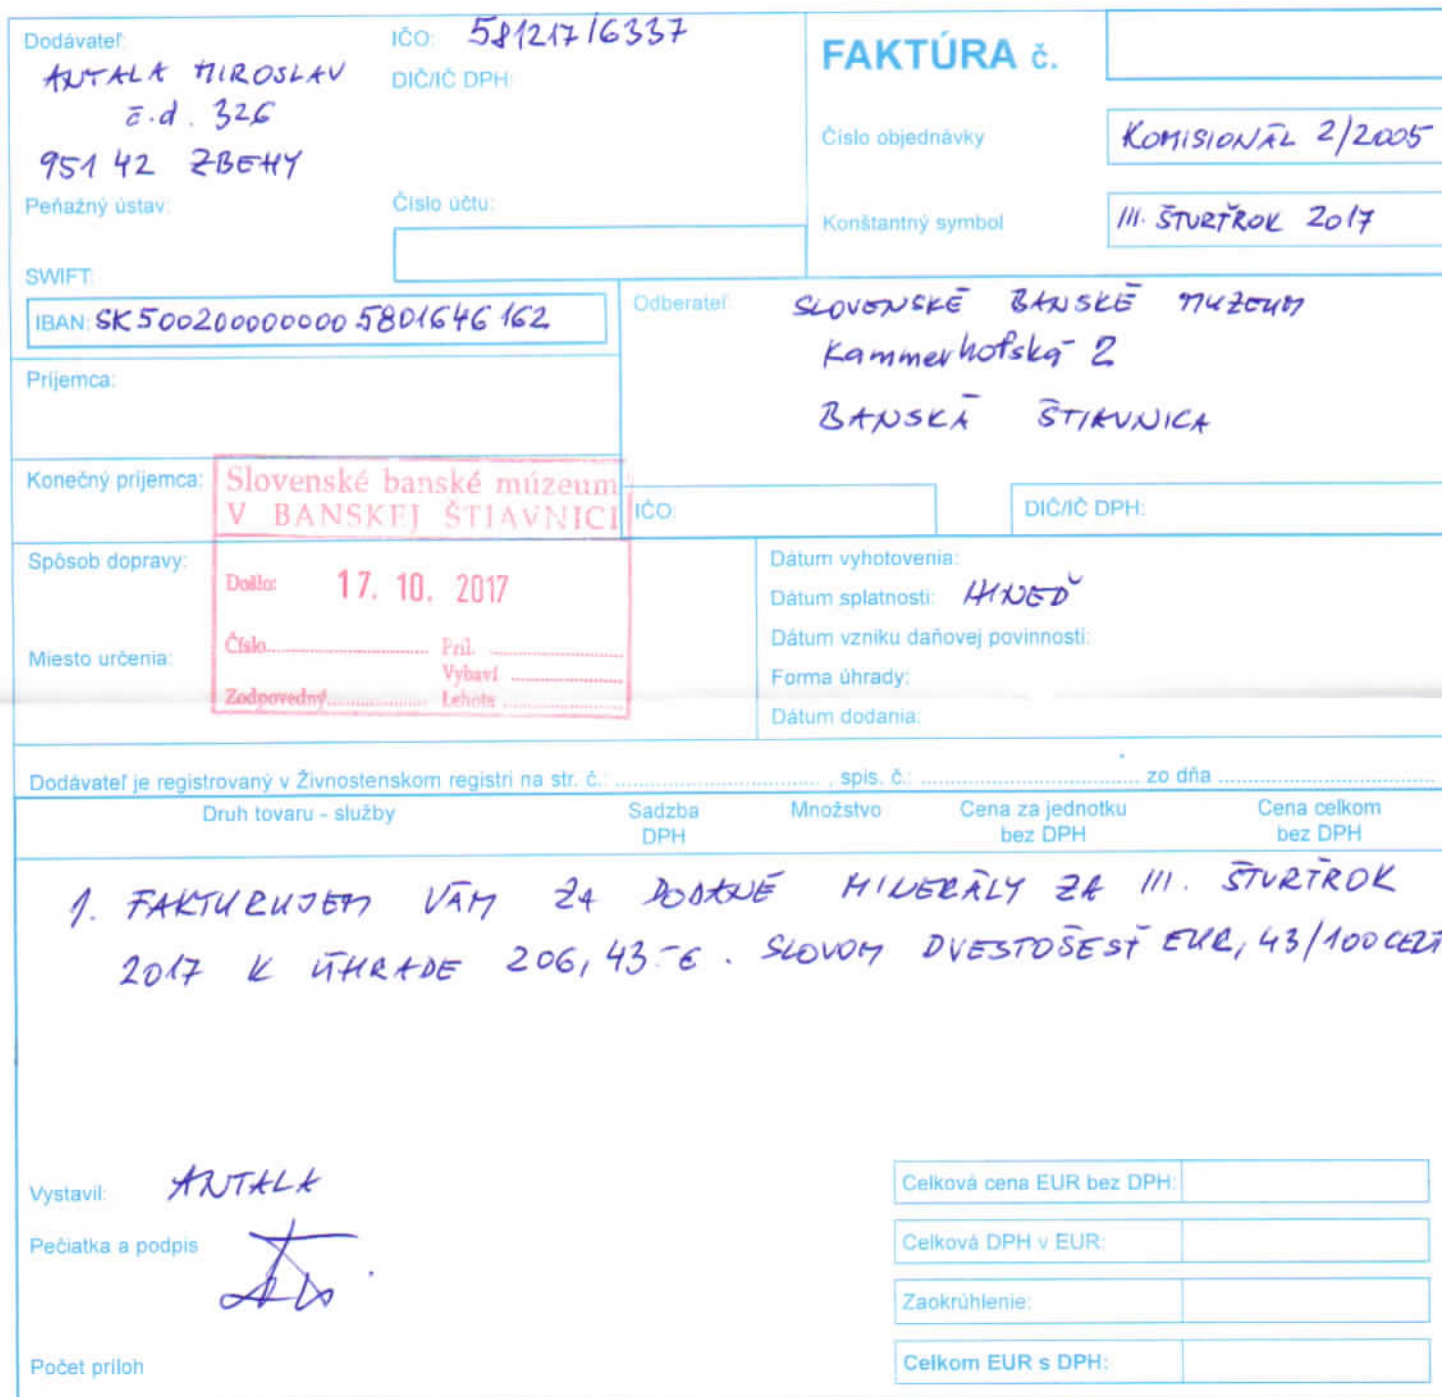 Dodávateľ:
ANTALA MIROSLAV
č.d. 326
951 42 ZBEHY
IČO: 581217/6337
DIČ/IČ DPH:
Peňažný ústav:
Číslo účtu:
SWIFT:
IBAN: SK5002000000005801646162
FAKTÚRA č.
Číslo objednávky KOMISIONÁL 2/2005
Konštantný symbol III. ŠTVRŤROK 2017
Odberateľ: SLOVENSKÉ BANSKÉ MUZEUM
Kammerhofská 2
BANSKÁ ŠTIAVNICA
Príjemca:
Konečný príjemca:
Slovenské banské múzeum
V BANSKEJ ŠTIAVNICI
Došlo: 17. 10. 2017
Číslo Príl.
Vybaví
Zodpovedný Lehota
IČO: DIČ/IČ DPH:
Spôsob dopravy:
Miesto určenia:
Dátum vyhotovenia:
Dátum splatnosti: IHNEĎ
Dátum vzniku daňovej povinnosti:
Forma úhrady:
Dátum dodania:
Dodávateľ je registrovaný v Živnostenskom registri na str. č.: , spis. č.: zo dňa
Druh tovaru - služby Sadzba DPH Množstvo Cena za jednotku bez DPH Cena celkom bez DPH
1. FAKTURUJEM VÁM ZA DODANÉ MINERÁLY ZA III. ŠTVRŤROK
2017 K ÚHRADE 206,43.-€. SLOVOM DVESTOŠESŤ EUR, 43/100 CENT
Vystavil: ANTALA
Pečiatka a podpis
Počet príloh
Celková cena EUR bez DPH:
Celková DPH v EUR:
Zaokrúhlenie:
Celkom EUR s DPH: